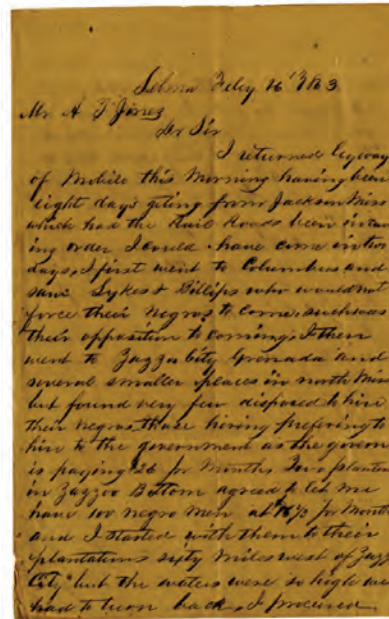 Selma Feby 16th 1863
Mr A T Jones
Dr Sir
I returned by way
of Mobile this Morning having been
eight days giting from Jackson Miss
which had the Rail Roads been in
ing order I could have come in two
days, I first went to Columbus and
saw Sykes & Billips who would not
force their negros to come, such was
their opposition to coming. I then
went to Yazzoo City Grenada and
several smaller places in north Miss
but found very few disposed to hire
their negros those hiring prefering to
hire to the government as the govern
is paying $26 per Months Two planters
in Yazzoo Bottom agreed to let me
have 100 negro men at per Month
and I started with them to their
plantations sixty miles west of Yazz
City but the waters were so high we
had to turn back, I procured